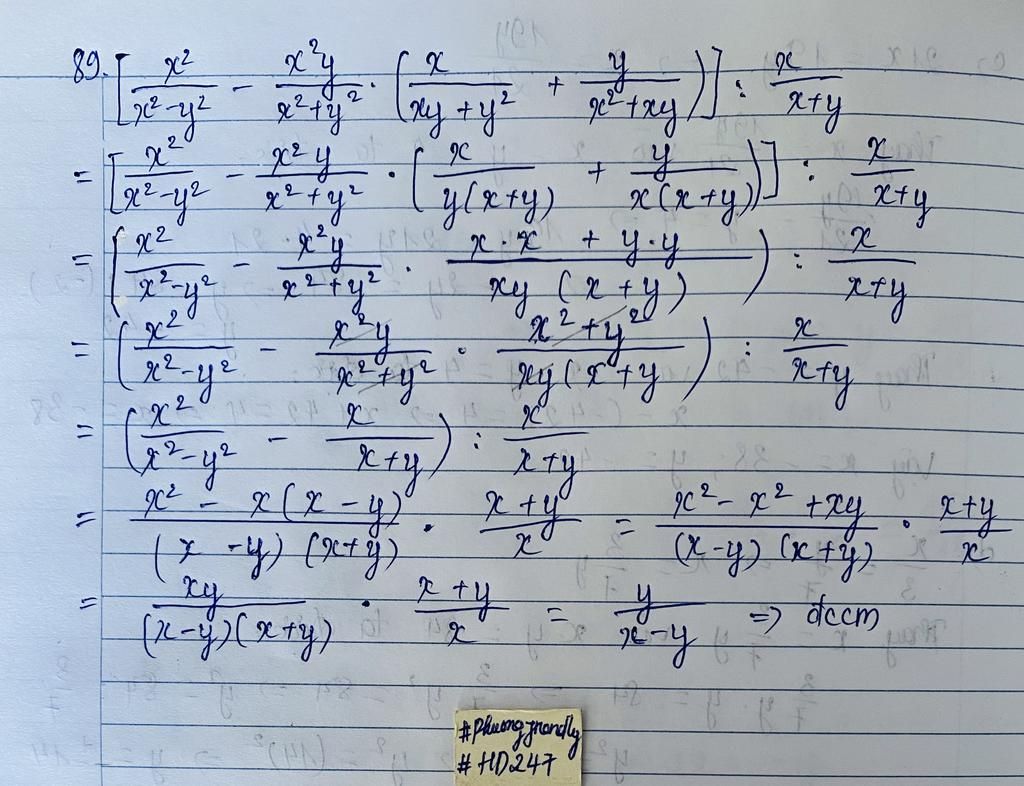 89. [x²/(x²-y²) - x²y/(x²+y²) · (x/(xy+y²) + y/(x²+xy))] : x/(x+y)
= [x²/(x²-y²) - x²y/(x²+y²) · (x/(y(x+y)) + y/(x(x+y)))] : x/(x+y)
= (x²/(x²-y²) - x²y/(x²+y²) · (x·x + y·y)/(xy(x+y))) : x/(x+y)
= (x²/(x²-y²) - x²y/(x²+y²) · (x²+y²)/(xy(x+y)) : x/(x+y)
= (x²/(x²-y²) - x/(x+y)) : x/(x+y)
= (x² - x(x-y))/((x-y)(x+y)) · (x+y)/x = (x²-x²+xy)/((x-y)(x+y)) · (x+y)/x
= xy/((x-y)(x+y)) · (x+y)/x = y/(x-y) => đccm
#Phuongfrondly
#HD247